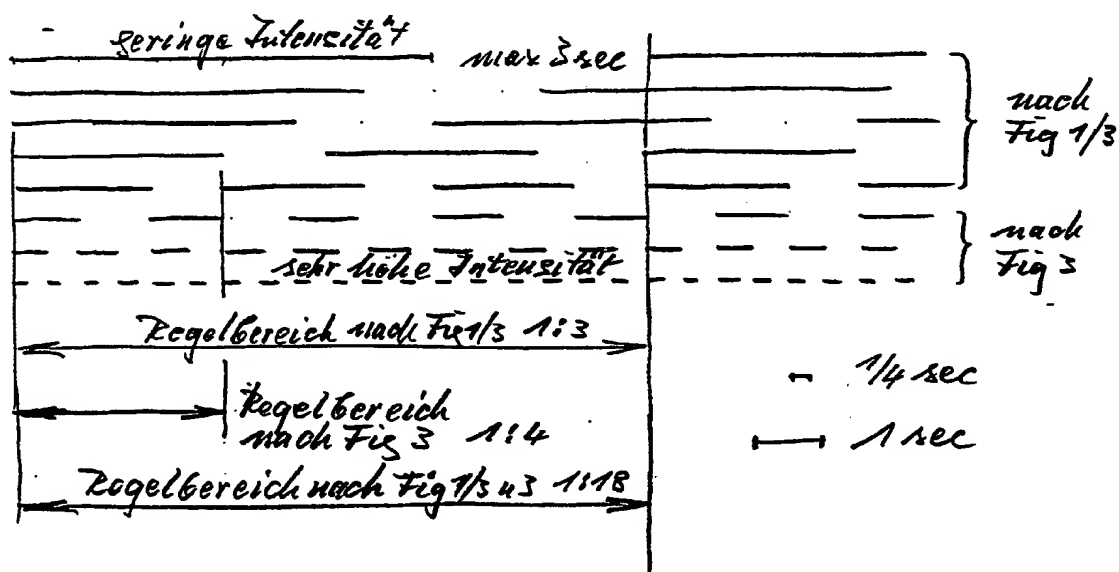 geringe Intensität
max 3 sec
nach
Fig 1/3
nach
Fig 3
sehr höhe Intensität
Regelbereich nach Fig 1/3 1:3
1/4 sec
Regelbereich
nach Fig 3 1:4
1 sec
Regelbereich nach Fig 1/3 u 3 1:18